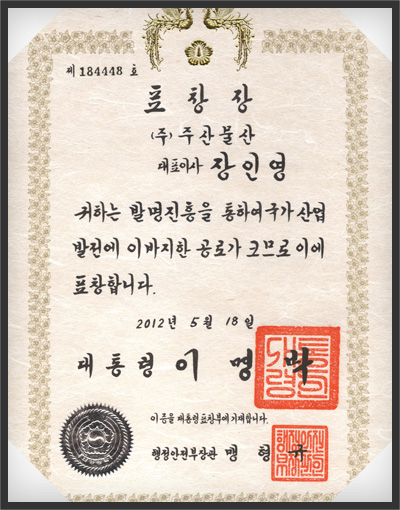 제 184448 호
표창장
(주) 주산물산
대표이사 장인영
귀하는 발명진흥을 통하여 국가 산업
발전에 이바지한 공로가 크므로 이에
표창합니다.
2012년 5월 18일
대통령 이명박
이 증을 대통령표창부에 기재합니다.
행정안전부장관 맹형규